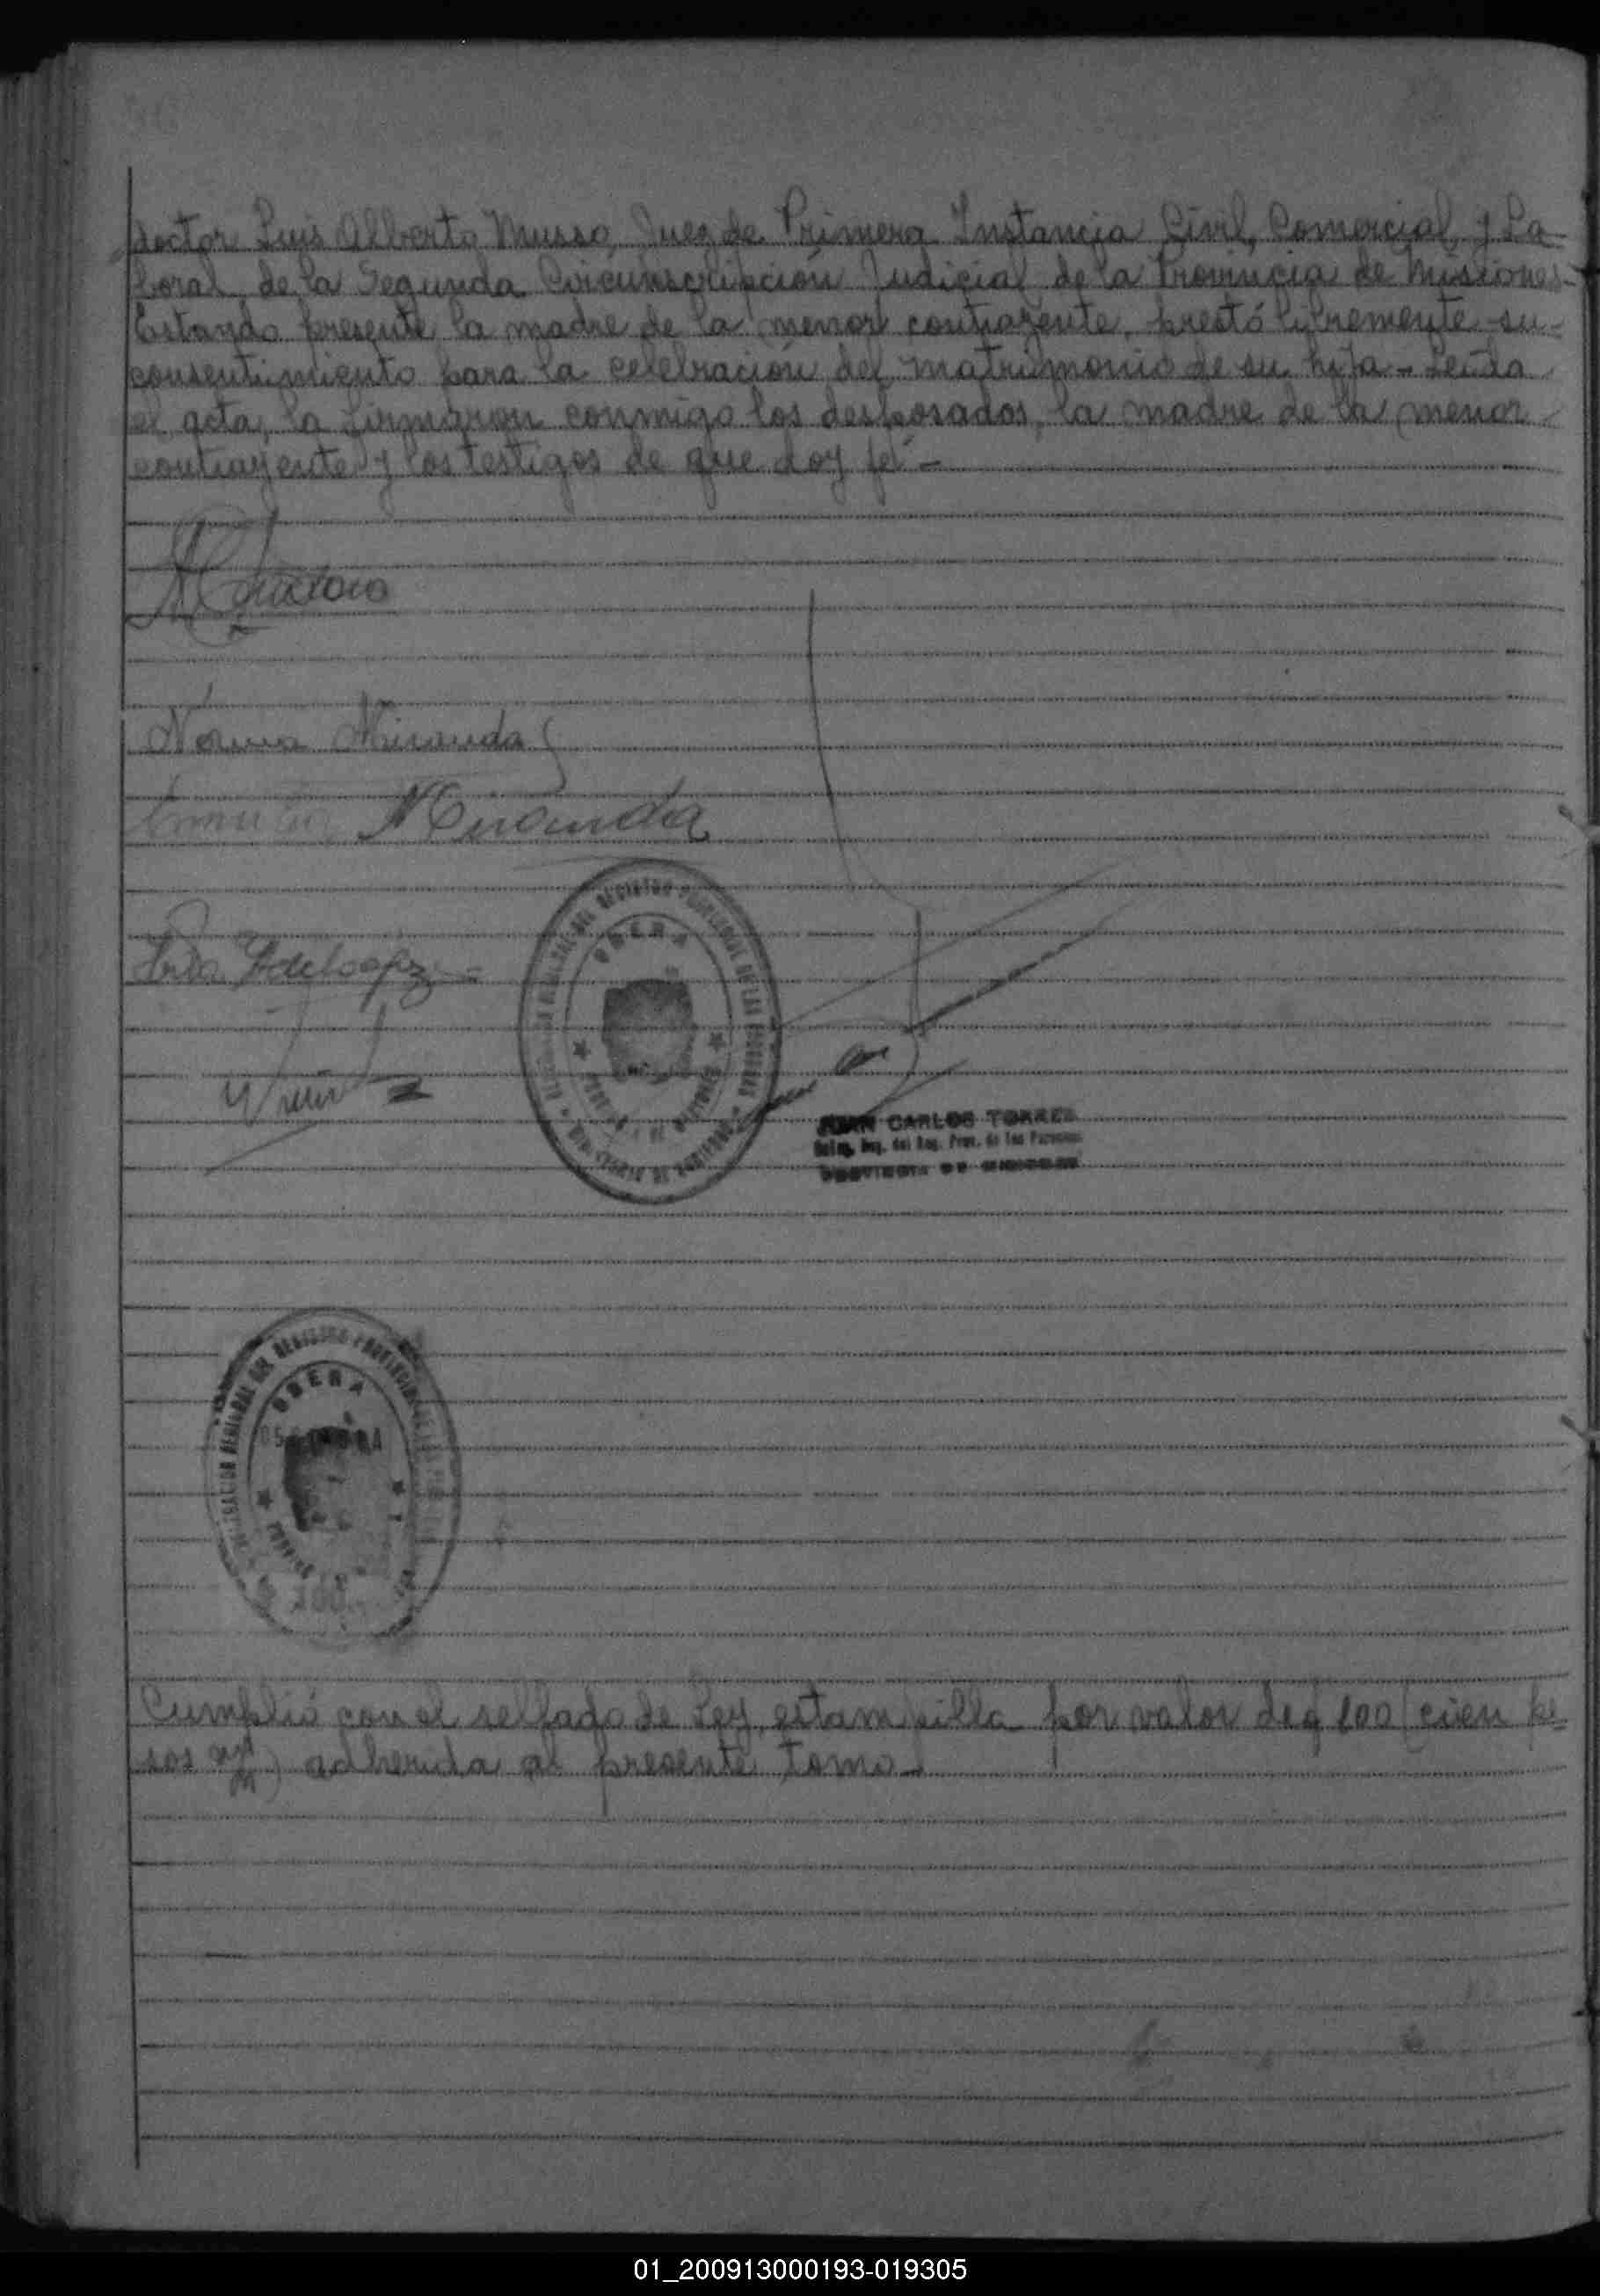 doctor Luis Alberto Musso, Juez de Primera Instancia Civil, Comercial, y La-
boral, de la Segunda Circunscripción Judicial de la Provincia de Misiones.-
Estando presente la madre de la menor contrayente, prestó libremente su-
consentimiento para la celebración del matrimonio de su hija.- Leída
el acta, la firmaron conmigo los desposados, la madre de la menor
contrayente y los testigos de que doy fé.-
Norma Miranda
Miranda
OBERA
JUAN CARLOS TORRES
Deleg. Reg. del Reg. Prov. de las Personas
PROVINCIA DE MISIONES
OBERA
Cumplió con el sellado de Ley, estampilla por valor de $ 100 (cien pe-
sos m/n) adherida al presente tomo.-
01_200913000193-019305